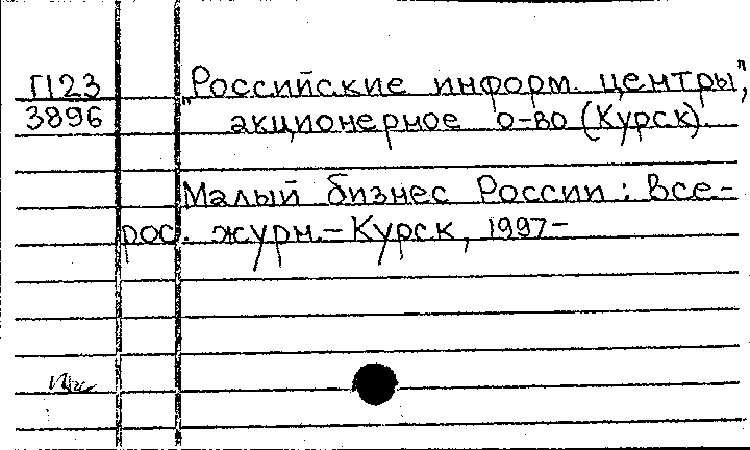 П123 „Российские информ. центры",
3896 акционерное о-во (Курск).
Малый бизнес России : Все-
рос. журн.-Курск, 1997-